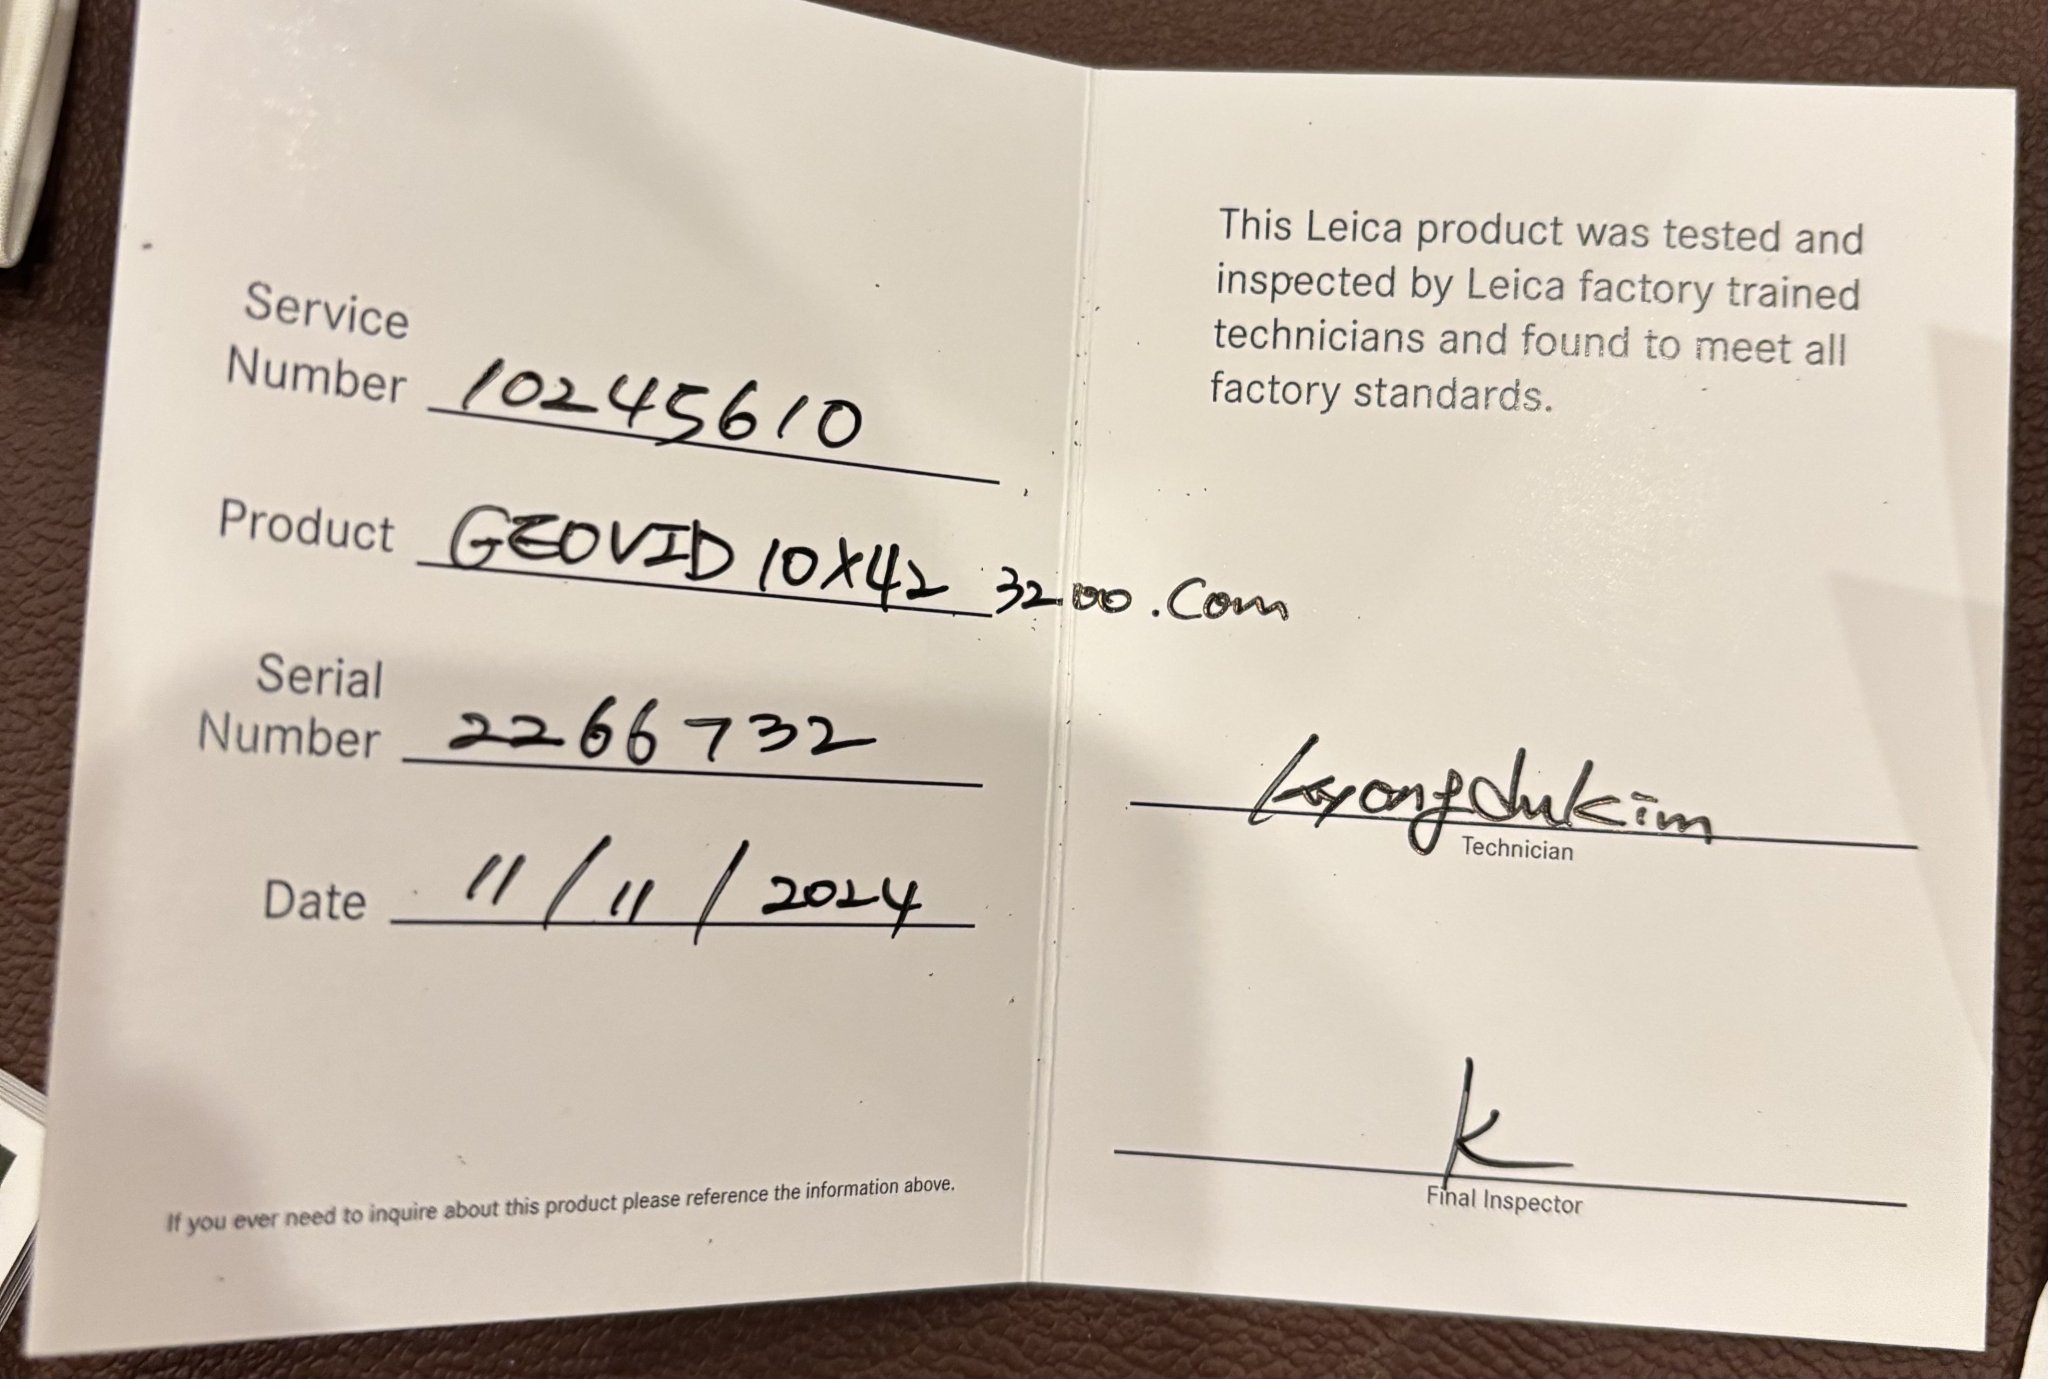 Service
Number 10245610
Product GEOVID 10X42 3200.Com
Serial
Number 2266732
Date 11/11/2024
If you ever need to inquire about this product please reference the information above.
This Leica product was tested and
inspected by Leica factory trained
technicians and found to meet all
factory standards.
Kyongdukim
Technician
K
Final Inspector